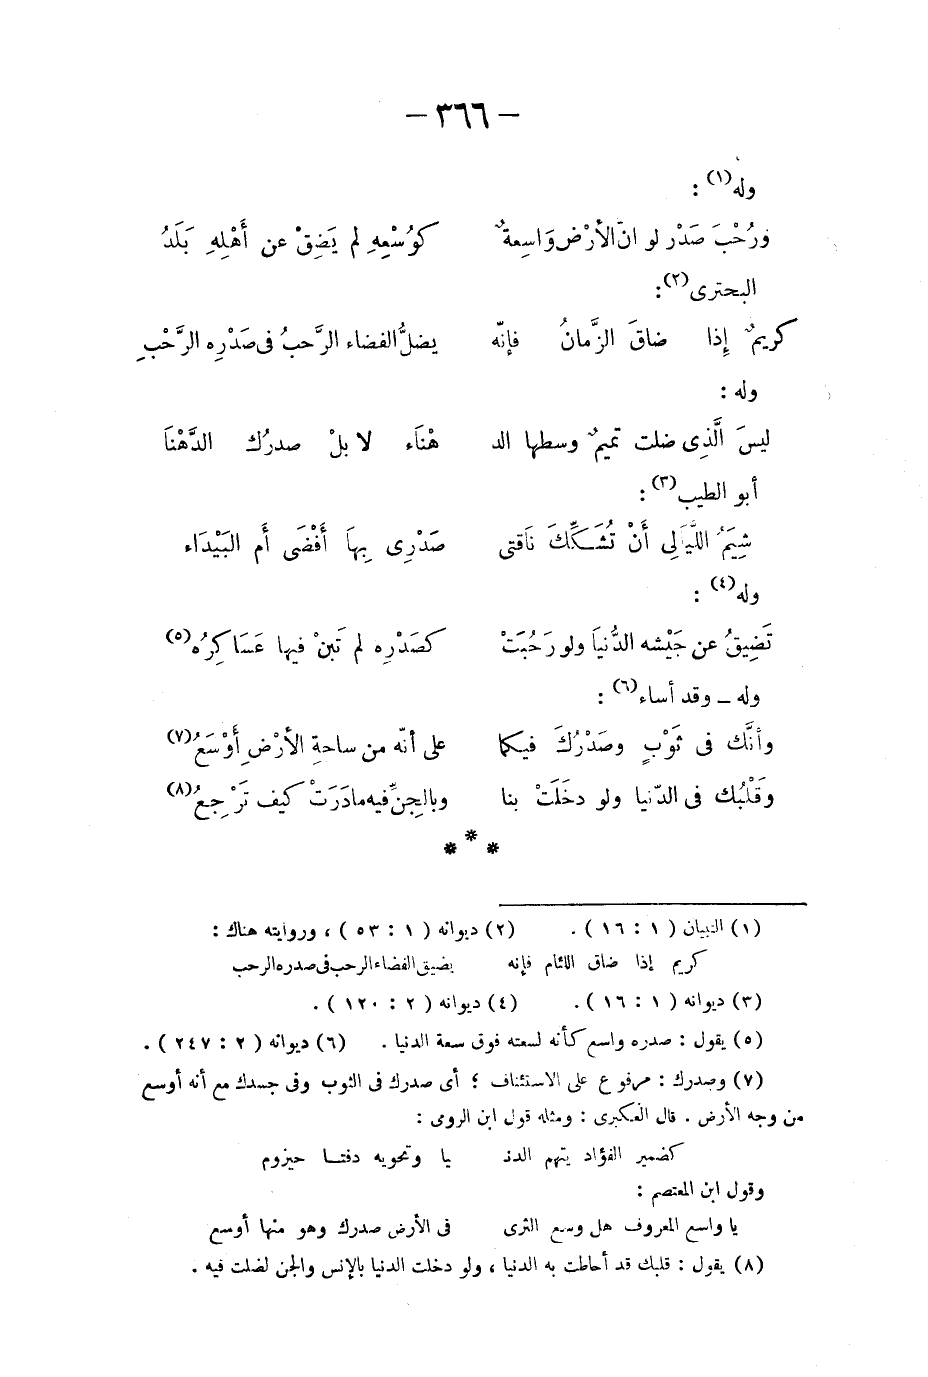 – ٣٦٦ –
وله(١) :
ورُحْبَ صَدْر لو انّ الأرْض وَاسِعةٌ كوُسْعِهِ لم يَضِقْ عن أَهْلِهِ بَلَدُ
البحترى(٢):
كريمٌ إِذا ضاقَ الزَّمانُ فإنّه يضلُّ الفضاء الرَّحبُ فى صَدْرِه الرَّحْبِ
وله :
ليسَ الَّذِى ضلت تميمٌ وسطها الد هْنَاء لا بلْ صدرُك الدَّهْنَا
أبو الطيب(٣) :
شِيَمُ اللَّيَالِى أَنْ تُشَكِّكَ نَاقتى صَدْرِى بِهَا أَفْضَى أَم البَيْدَاء
وله(٤) :
تَضِيقُ عن جَيْشه الدُّنيَا ولو رَحُبَتْ كصَدْرِه لم تَبِنْ فيها عَسَاكِرُه(٥)
وله – وقد أساء(٦) :
وأنَّك فى ثَوْبٍ وصَدْرُكَ فيكما على أنّه من ساحةِ الأرْضِ أَوْسَعُ(٧)
وقَلْبُك فى الدّنيا ولو دخَلَتْ بنا وبالجِنِّ فيه مادَرَتْ كيف تَرْجِعُ(٨)
* * *
(١) التبيان ( ١ : ١٦ ) . (٢) ديوانه ( ١ : ٥٣ ) ، وروايته هناك :
كريم إذا ضاق اللئام فإنه يضيق الفضاء الرحب فى صدره الرحب
(٣) ديوانه ( ١ : ١٦ ) . (٤) ديوانه ( ٢ : ١٢٠ ) .
(٥) يقول : صدره واسع كأنه لسعته فوق سعة الدنيا . (٦) ديوانه ( ٢ : ٢٤٧ ) .
(٧) وصدرك : مرفوع على الاستئناف ؛ أى صدرك فى الثوب وفى جسدك مع أنه أوسع
من وجه الأرض . قال العكبرى : ومثله قول ابن الرومى :
كضمير الفؤاد يلتهم الدنـ ـيا وتحويه دفتـا حيزوم
وقول ابن المعتصم :
يا واسع المعروف هل وسع الثرى فى الأرض صدرك وهو منها أوسع
(٨) يقول : قلبك قد أحاطت به الدنيا ، ولو دخلت الدنيا بالإنس والجن لضلت فيه .